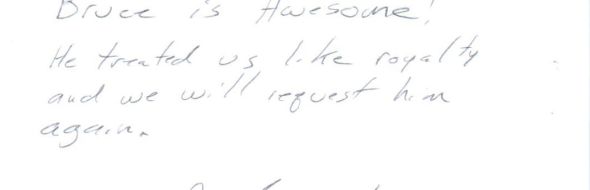 Bruce is Awesome!
He treated us like royalty
and we will request him
again.